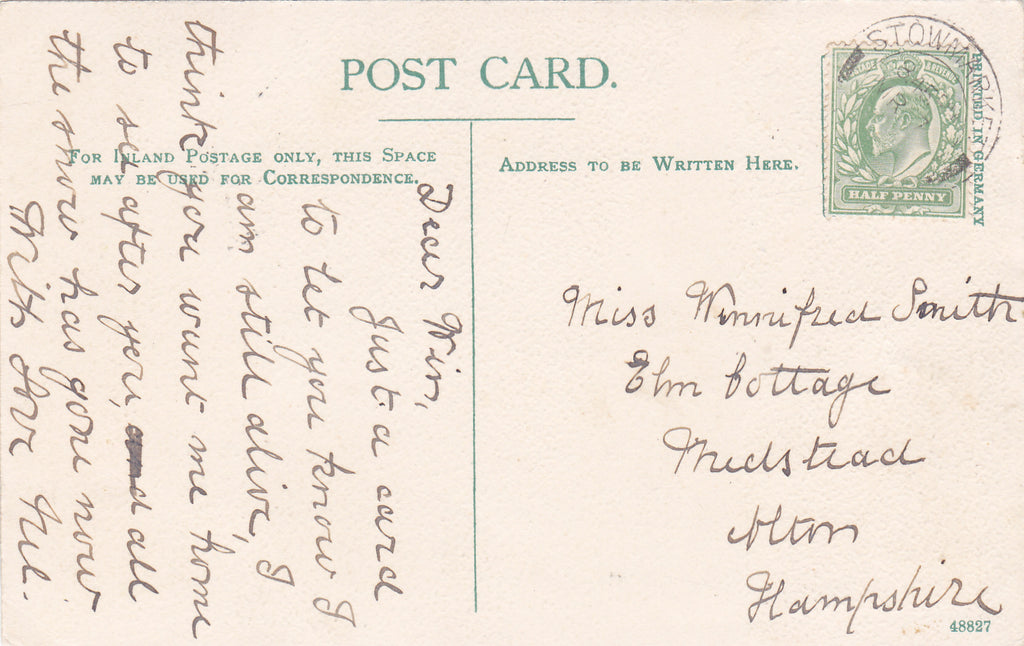 POST CARD.
FOR INLAND POSTAGE ONLY, THIS SPACE
MAY BE USED FOR CORRESPONDENCE.
ADDRESS TO BE WRITTEN HERE.
STOWMARKE
HALF PENNY
PRINTED IN GERMANY
Dear Win,
Just a card
to let you know I
am still alive, I
think you want me home
to see after you, and all
the snow has gone now
With Love
Miss Winnifred Smith
Elm Cottage
Medstead
Alton
Hampshire
48827